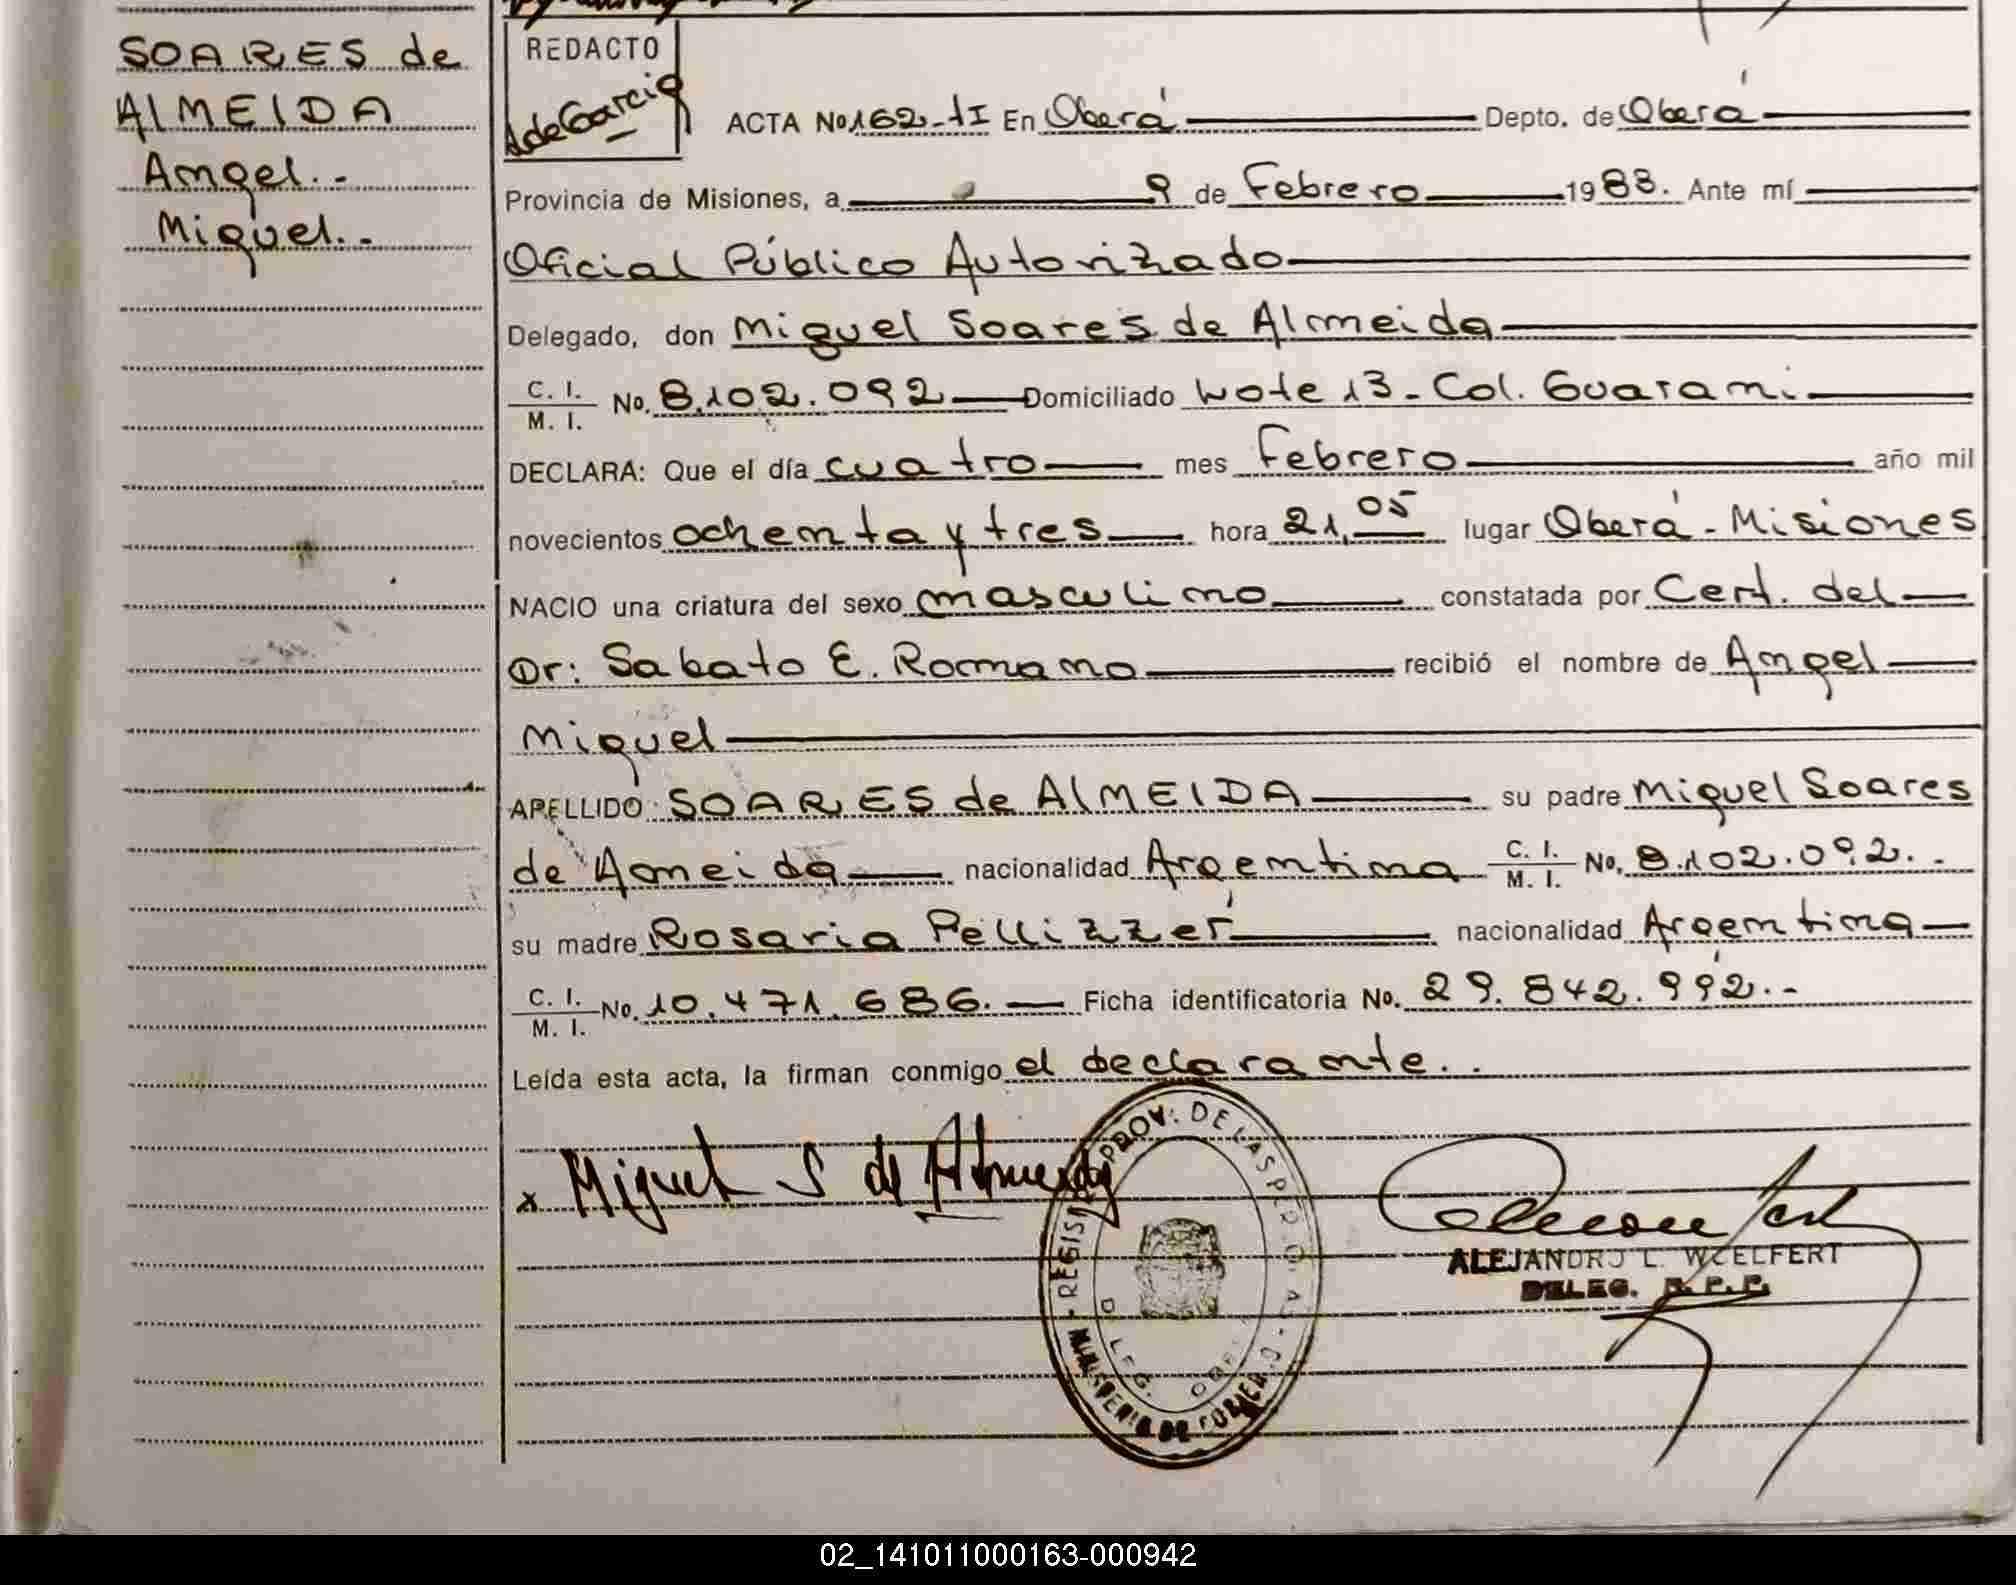 SOARES de
ALMEIDA
Angel.-
Miguel.-
REDACTO
AdeGarcia
ACTA No 162-tI En Oberá Depto. de Oberá
Provincia de Misiones, a 9 de Febrero 1983. Ante mí
Oficial Público Autorizado
Delegado, don Miguel Soares de Almeida
C. I. M. I. No. 8.102.092 Domiciliado Lote 13- Col. Guarani
DECLARA: Que el día cuatro mes Febrero año mil
novecientos ochenta y tres hora 21,05 lugar Oberá - Misiones
NACIO una criatura del sexo masculino constatada por Cert. del
Dr: Sabato E. Romano recibió el nombre de Angel
Miguel
APELLIDO SOARES de ALMEIDA su padre Miguel Soares
de Almeida nacionalidad Argentina C. I. M. I. No. 8.102.092.-
su madre Rosaria Pellizzer nacionalidad Argentina
C. I. M. I. No. 10.471.686. Ficha identificatoria No. 29.842.992.-
Leída esta acta, la firman conmigo el declarante..
x Miguel S de Almeida
REGIS PROV. DE LAS PER
DELEG. OBERA
MINISTERIO DE GOBIERNO
ALEJANDRO L. WOELFERT
DELEG. R.P.P.
02_141011000163-000942